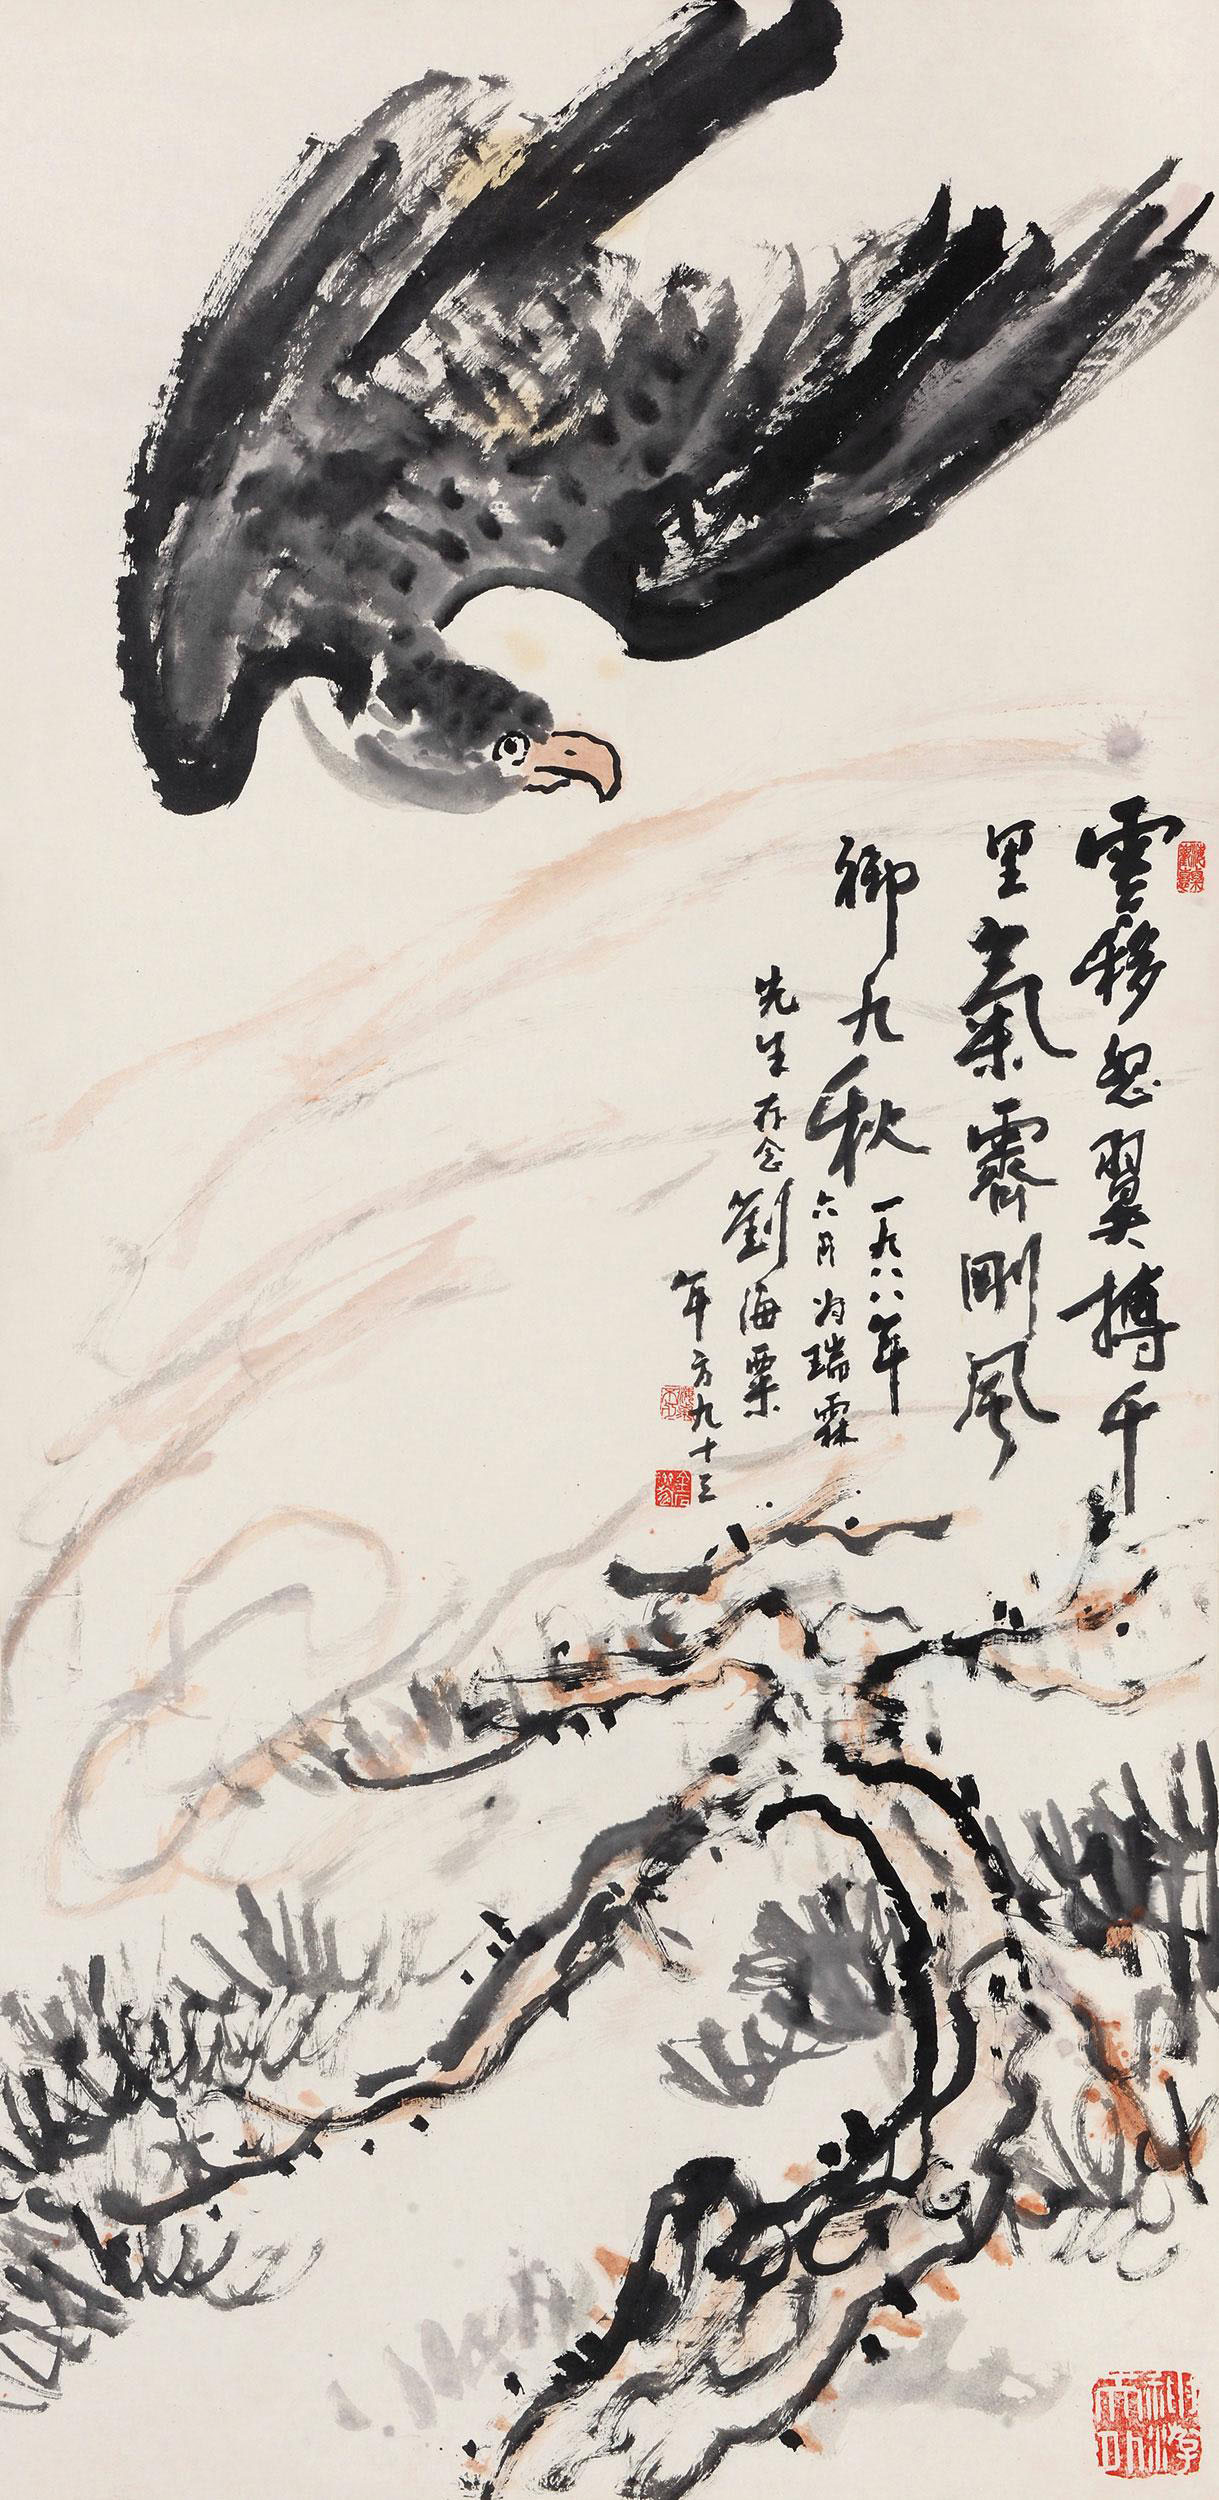 雲移怒翼搏千
里氣霽剛風
御九秋
一九八八年
六月為瑞霖
先生存念劉海粟
年方九十三